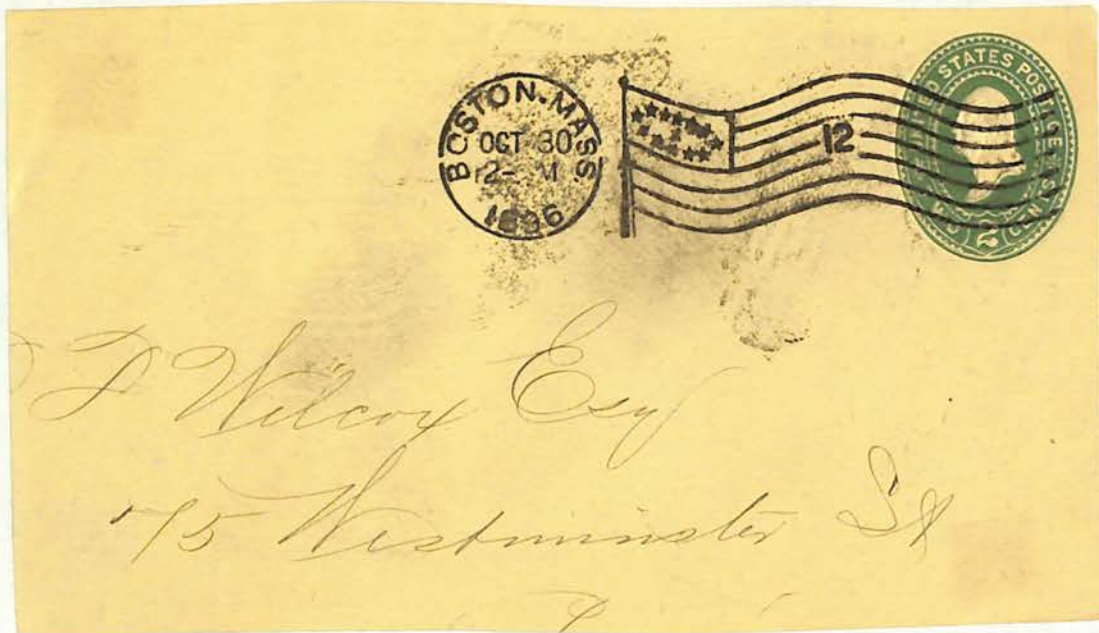 BOSTON. MASS.
OCT 30
12- M
1896
12
UNITED STATES POSTAGE
TWO 2 CENTS
D Wilcox Esq
75 Westminster St